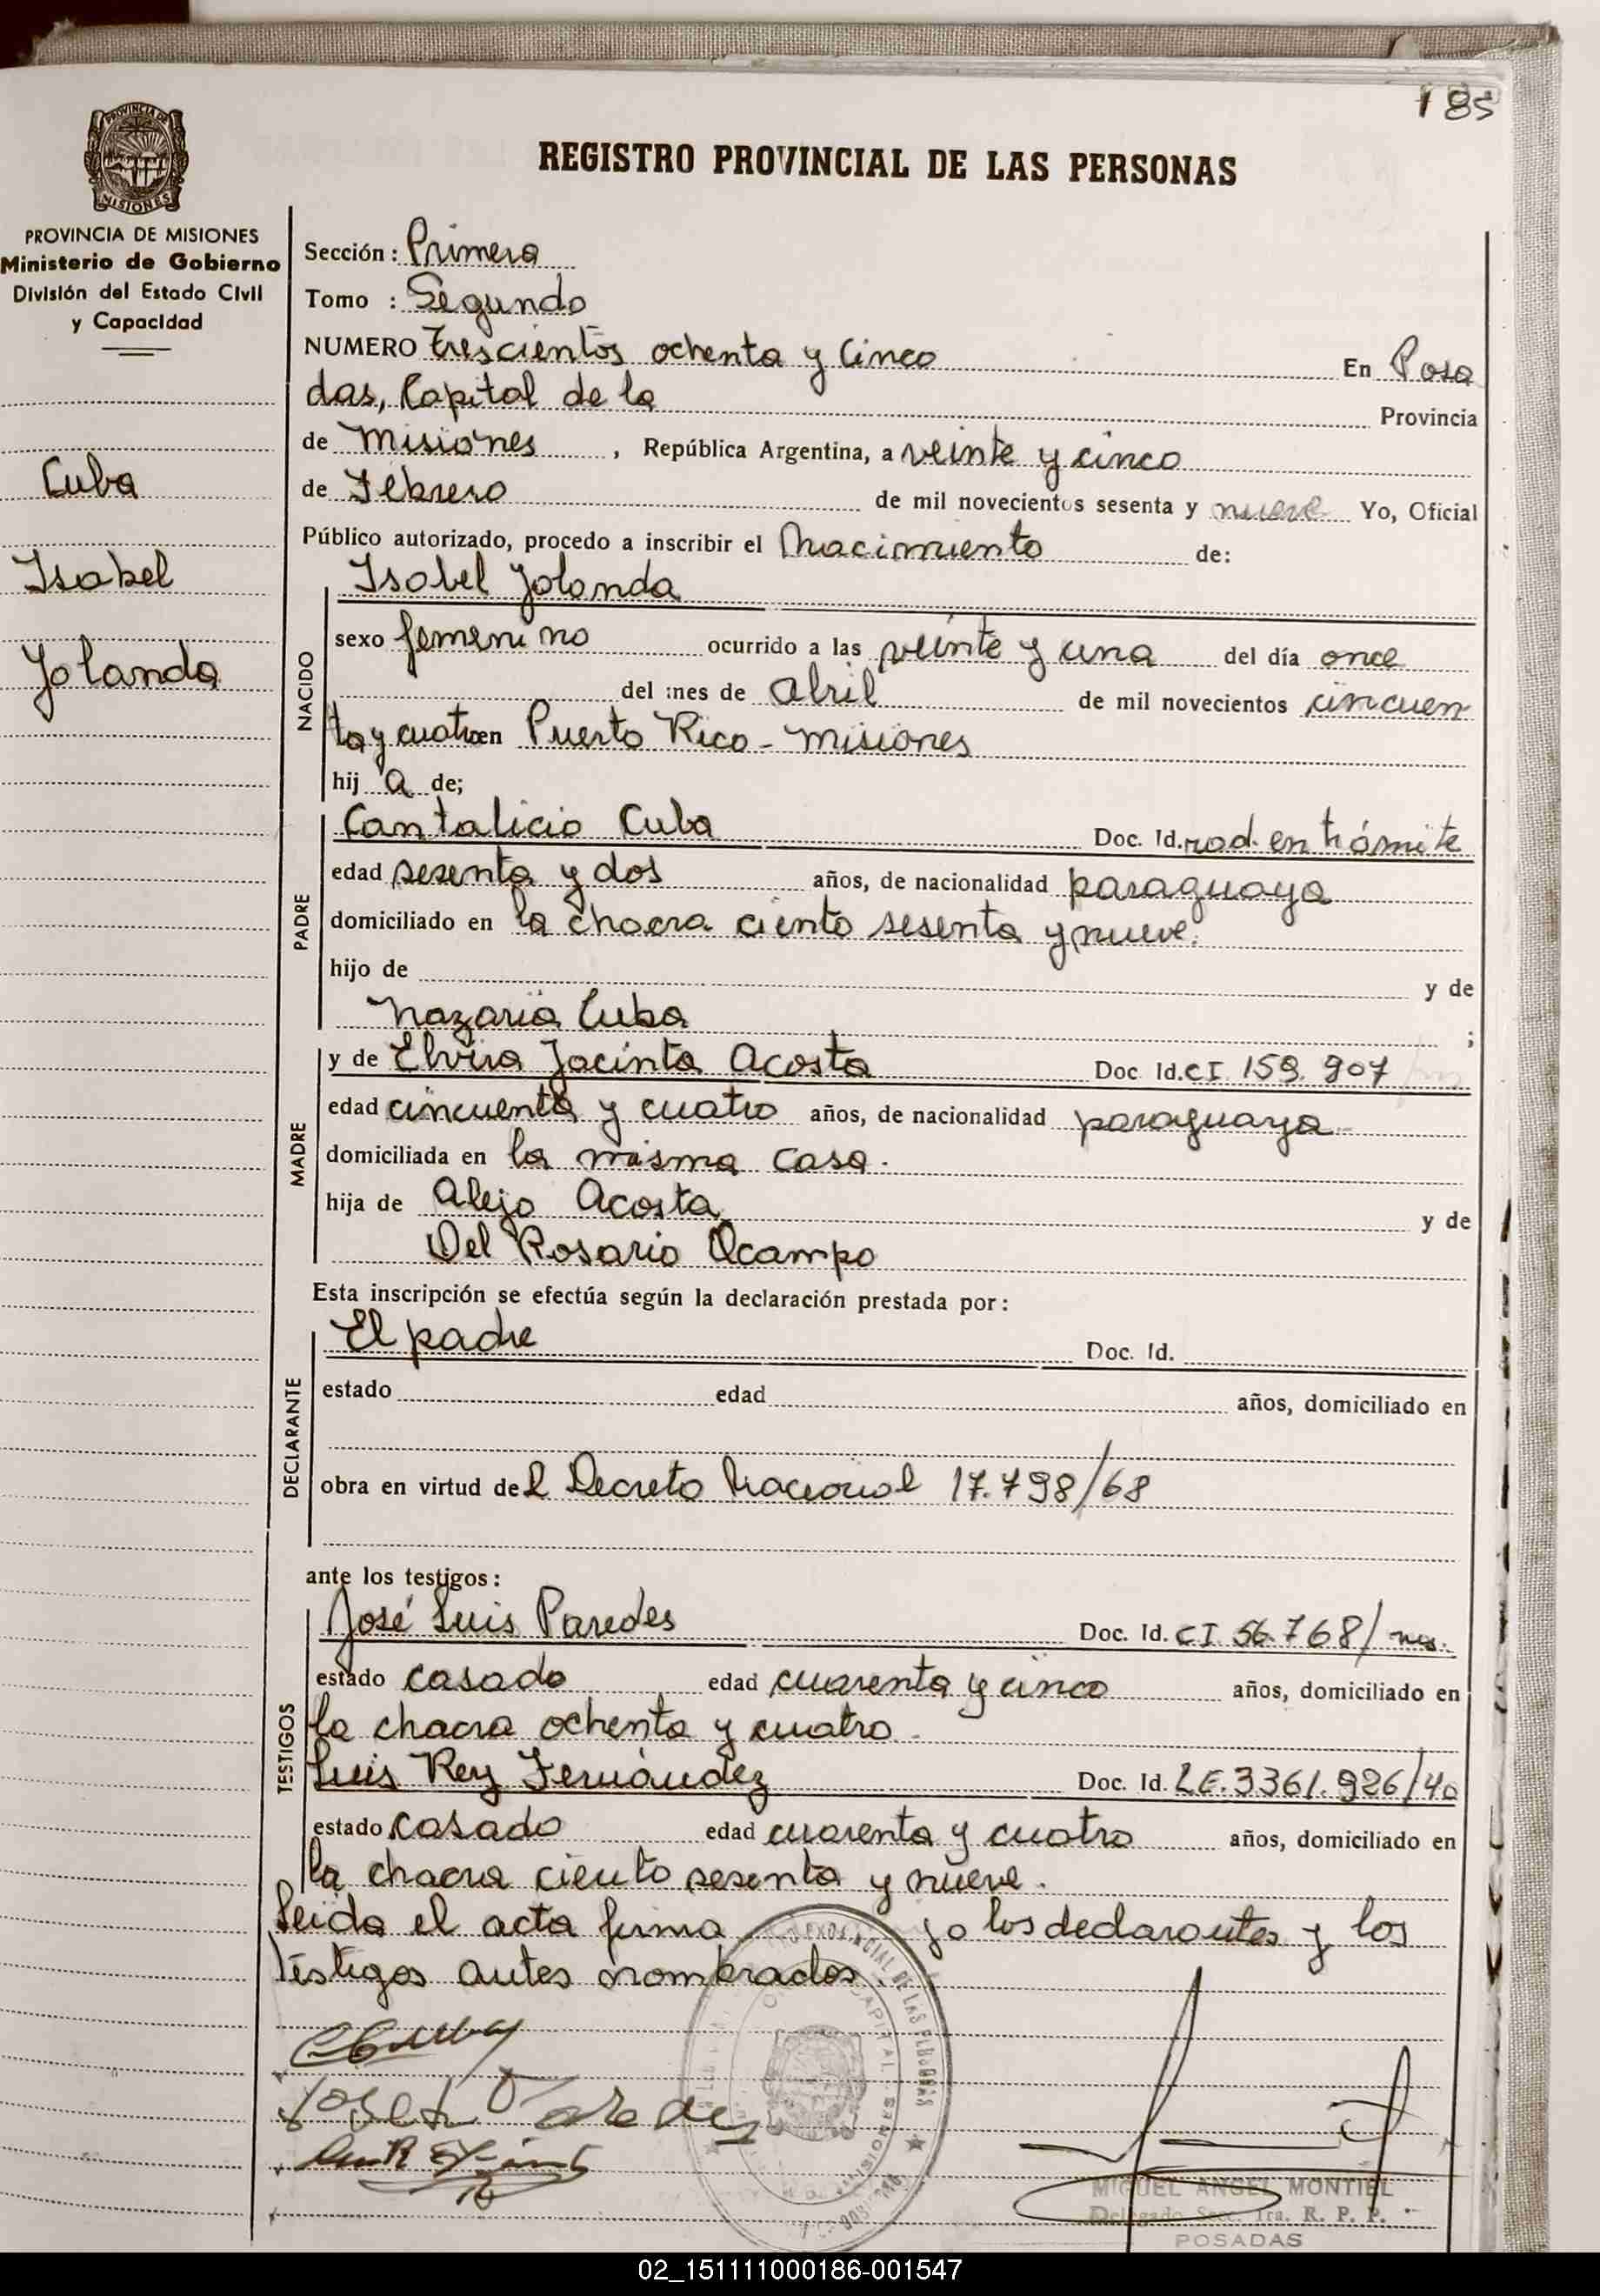 185
PROVINCIA DE
MISIONES
REGISTRO PROVINCIAL DE LAS PERSONAS
PROVINCIA DE MISIONES
Ministerio de Gobierno
División del Estado Civil
y Capacidad
Cuba
Isabel
Yolanda
Sección: Primera
Tomo : Segundo
NUMERO trescientos ochenta y cinco En Posa
das, Capital de la Provincia
de Misiones , República Argentina, a veinte y cinco
de Febrero de mil novecientos sesenta y nueve Yo, Oficial
Público autorizado, procedo a inscribir el Nacimiento de:
NACIDO
Isabel Yolanda
sexo femenino ocurrido a las veinte y una del día once
del mes de abril de mil novecientos cincuen
ta y cuatro en Puerto Rico - Misiones
hij a de;
PADRE
Cantalicio Cuba Doc. Id. rad. en trámite
edad sesenta y dos años, de nacionalidad paraguaya
domiciliado en la chacra ciento sesenta y nueve.
hijo de y de
Nazaria Cuba ;
MADRE
y de Elvira Jacinta Acosta Doc Id. CI 159.907
edad cincuenta y cuatro años, de nacionalidad paraguaya
domiciliada en la misma casa.
hija de Alejo Acosta y de
Del Rosario Ocampo
Esta inscripción se efectúa según la declaración prestada por:
DECLARANTE
El padre Doc. Id.
estado edad años, domiciliado en
obra en virtud de l Decreto Nacional 17.798/68
ante los testigos:
TESTIGOS
José Luis Paredes Doc. Id. CI 56.768/ ms.
estado casado edad cuarenta y cinco años, domiciliado en
la chacra ochenta y cuatro.
Luis Rey Fernández Doc. Id. LE. 3361.926/40
estado casado edad cuarenta y cuatro años, domiciliado en
la chacra ciento sesenta y nueve.
Leida el acta firma los declarantes y los
testigos antes nombrados.
C Cuba
Jose L Paredes
PROVINCIAL DE LAS PERSONAS
CAPITAL
MISIONES
MIGUEL ANGEL MONTIEL
Delegado Secc. 1ra. R. P. P.
POSADAS
02_151111000186-001547